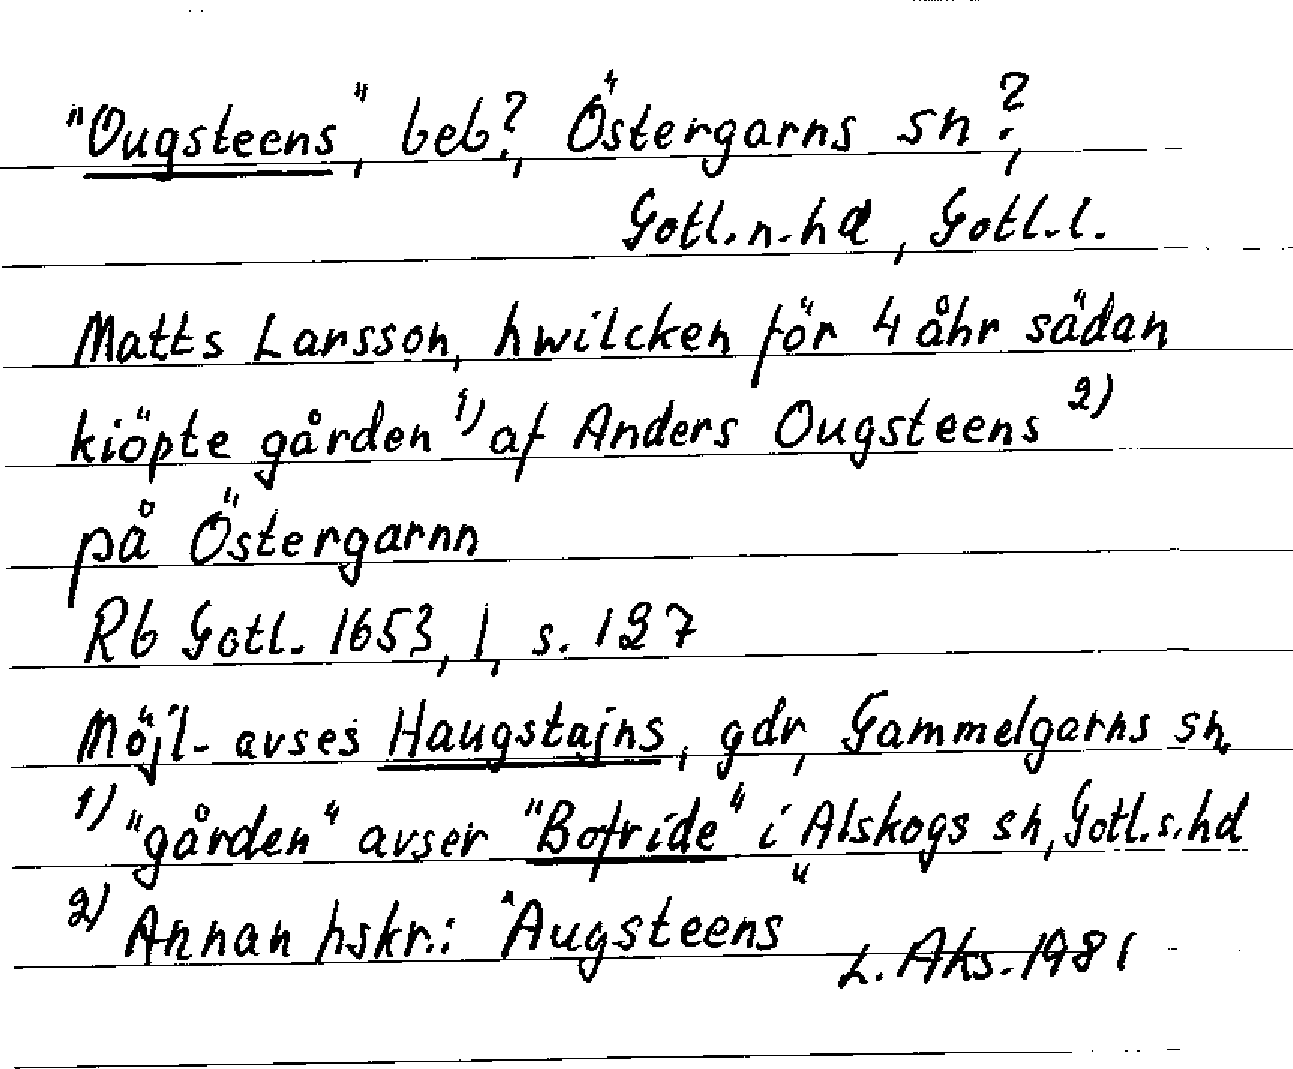 "Ougsteens", beb?, Östergarns sn?,
Gotl. n. hd, Gotl. l.
Matts Larsson, hwilcken för 4 åhr sädan
kiöpte gården 1) af Anders Ougsteens 2)
på Östergarnn
Rb Gotl. 1653, 1, s. 127
Möjl. avses Haugstajns, gdr, Gammelgarns sn.
1) "gården" avser "Bofride" i Alskogs sn, Gotl. s. hd
2) Annan hskr.: "Augsteens"
L. Ahs. 1981